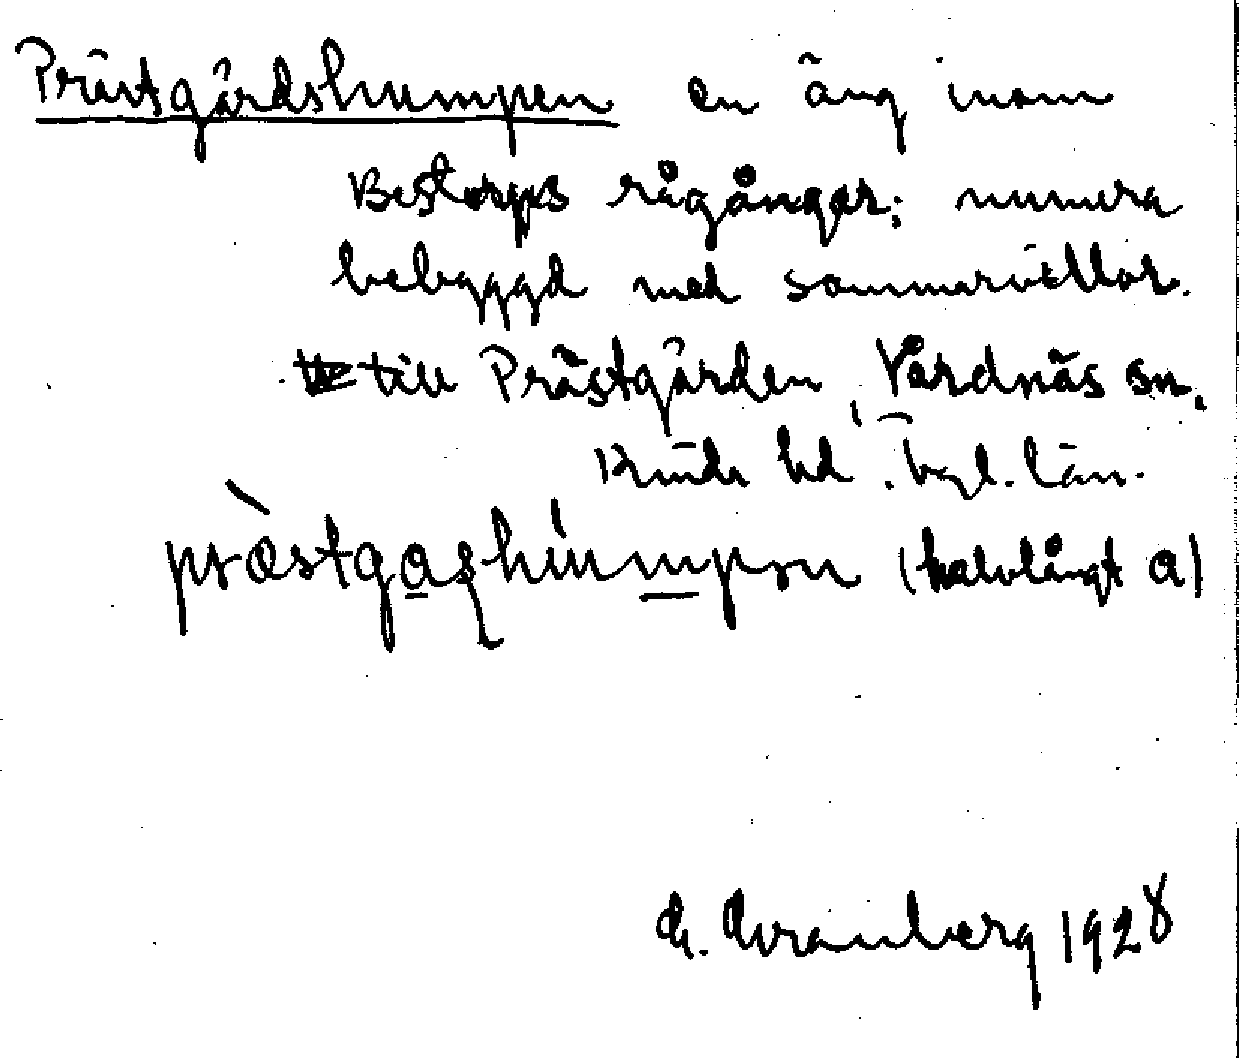 Prästgårdshumpen en äng inom
Bestorps rågångar; numera
bebyggd med sommarvillor.
till Prästgården, Vårdnäs sn,
Kinds hd, Ögl. län.
pròstgashúmpən (halvlångt a)
1928